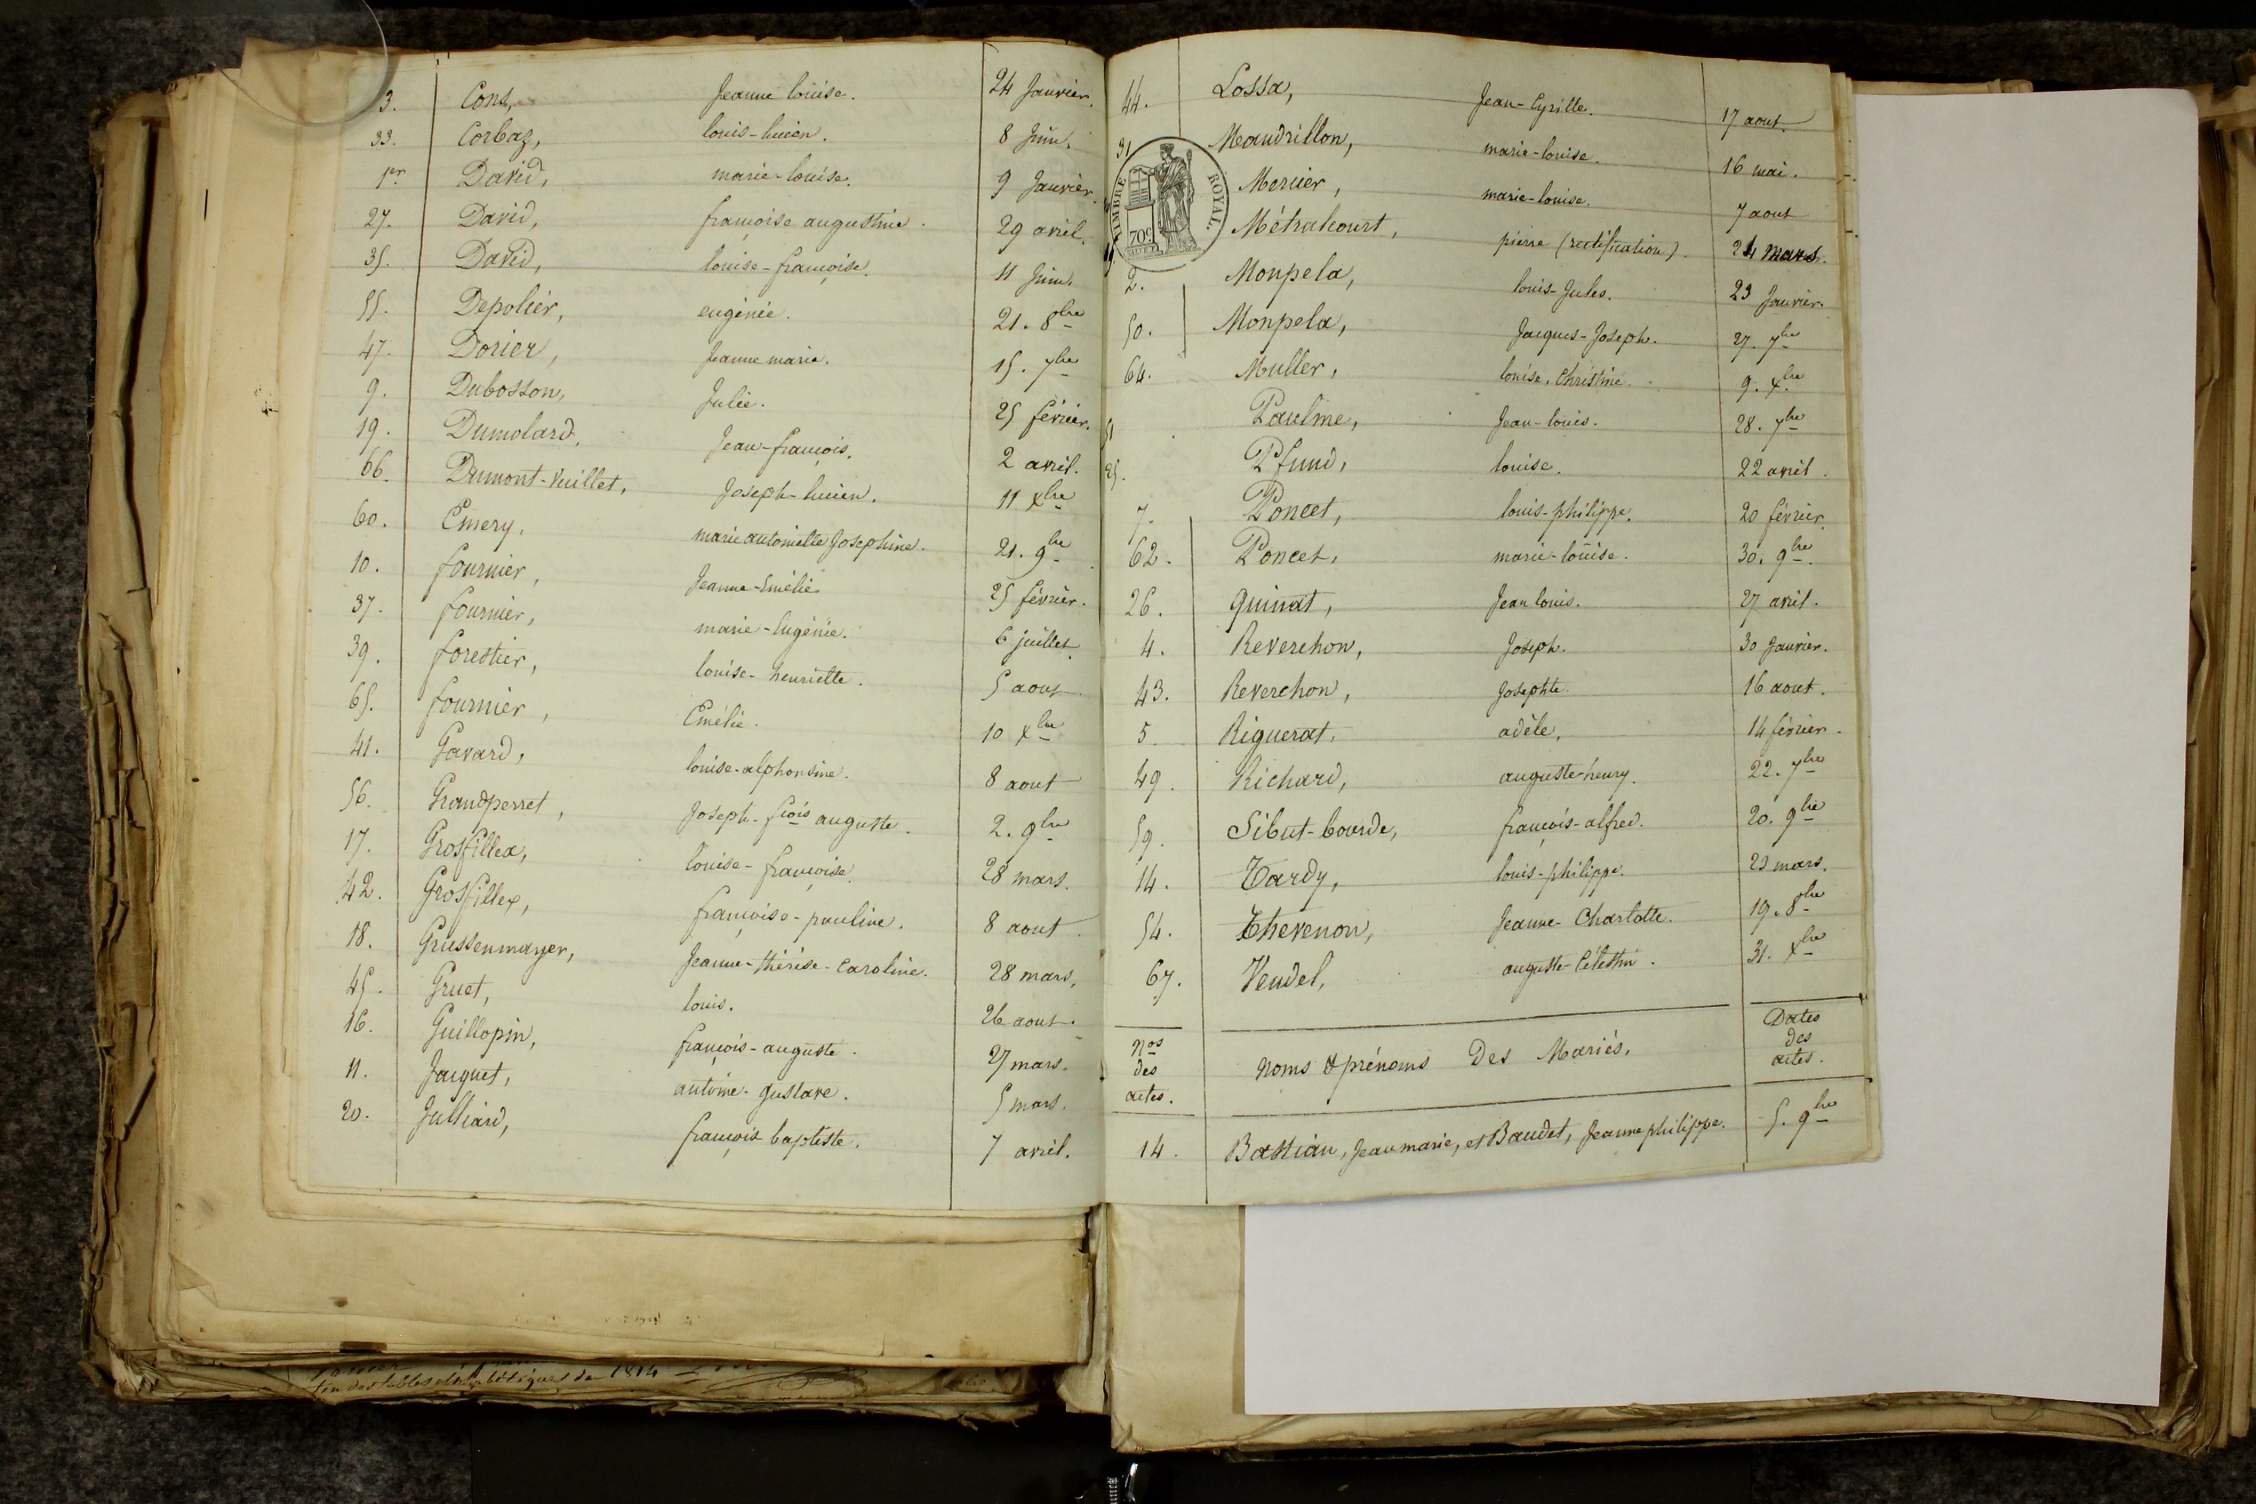 3. Cons, Jeanne louise. 24 Janvier.
33. Corbaz, louis-lucien. 8 Juin.
1er David, marie-louise. 9 Janvier.
27. David, françoise augustine. 29 avril.
35. David, louise-françoise. 11 Juin.
55. Depolier, eugénie. 21. 8bre
47. Dorier, Jeanne marie. 15. 7bre
9. Dubosson, Julie. 25 février.
19. Dumolard, Jean-françois. 2 avril.
66. Dumont-Vuillet, Joseph-lucien. 11 Xbre
60. Emery, marie antoinette Josephine. 21. 9bre
10. fournier, Jeanne-Emélie 25 février.
37. fournier, marie-Eugénie. 6 juillet.
39. forestier, louise-henriette. 5 aout
65. fournier, Emélie. 10 Xbre
41. Gavard, louise-alphonsine. 8 aout
56. Grandperret, Joseph-fçois auguste. 2. 9bre
17. Grosfillex, louise-françoise. 28 mars.
42. Grosfillex, françoise-pauline. 8 aout
18. Grussenmayer, Jeanne-thérèse-Caroline. 28 mars.
45. Gruet, louis. 26 aout.
16. Guillopin, françois-auguste. 27 mars.
11. Jacquet, antoine-gustave. 5 mars.
20. Julliard, françois baptiste. 7 avril.
fin des tables alphabétiques de 1814
44. Lossa, Jean-Cyrille. 17 aout.
31 Mandrillon, marie-louise. 16 mai.
Mercier, marie-louise. 7 aout
Métralcourt, pierre (rectification). 24 mars.
TIMBRE ROYAL
70c
2. Monpela, louis-Jules. 23 Janvier.
50. Monpela, Jacques-Joseph. 27. 7bre
64. Muller, louise. Christine. 9. Xbre
51 Paulme, Jean-louis. 28. 7bre
25. Pfund, louise. 22 avril.
7. Poncet, louis-philippe. 20 février.
62. Poncet, marie-louise. 30. 9bre.
26. Quinat, Jean louis. 27 avril.
4. Reverchon, Joseph. 30 Janvier.
43. Reverchon, Josephte. 16 aout.
5. Riguerat, adèle. 14 février.
49. Richard, auguste-henry. 22. 7bre
59. Sibut-bourde, françois-alfred. 20. 9bre
14. Tardy, louis-philippe. 23 mars.
54. Thevenon, Jeanne-Charlotte. 19. 8bre
67. Vendel, auguste-Célestin. 31. Xbre
Nos des actes. Noms & prénoms Des Mariés. Dates des actes.
14. Bastian, Jean marie, et Baudet, Jeanne philippe. 5. 9bre